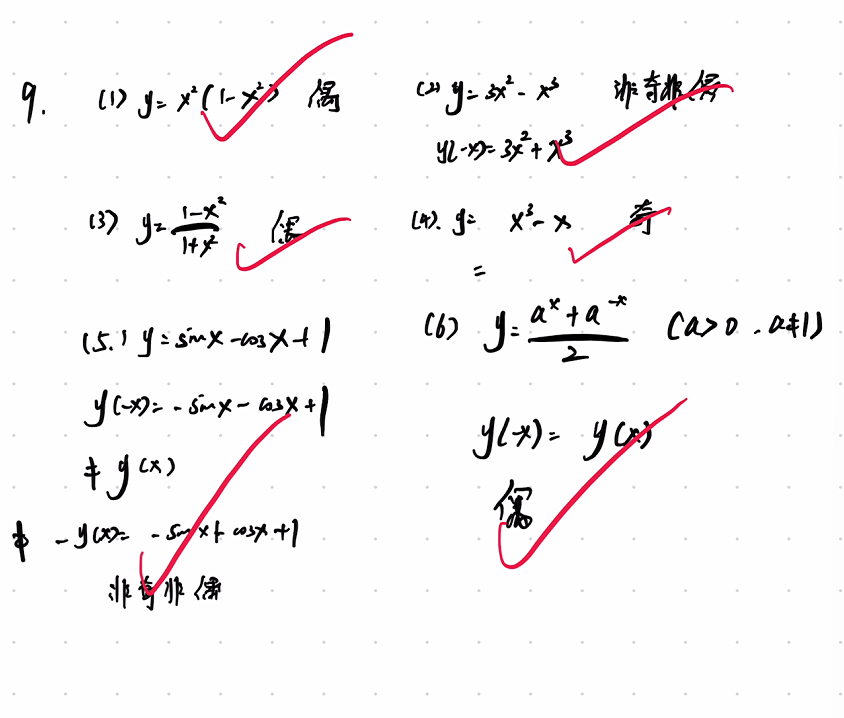 9. (1) y = x²(1-x²) 偶
(2) y = 3x² - x³ 非奇非偶
y(-x) = 3x² + x³
(3) y = (1-x²)/(1+x²) 偶
(4). y = x³ - x 奇
=
(5.) y = sinx - cosx + 1
y(-x) = - sinx - cosx + 1
≠ y(x)
≠ - y(x) = - sinx + cosx + 1
非奇非偶
(6) y = (aˣ + a⁻ˣ)/2 (a>0 . a≠1)
y(-x) = y(x)
偶